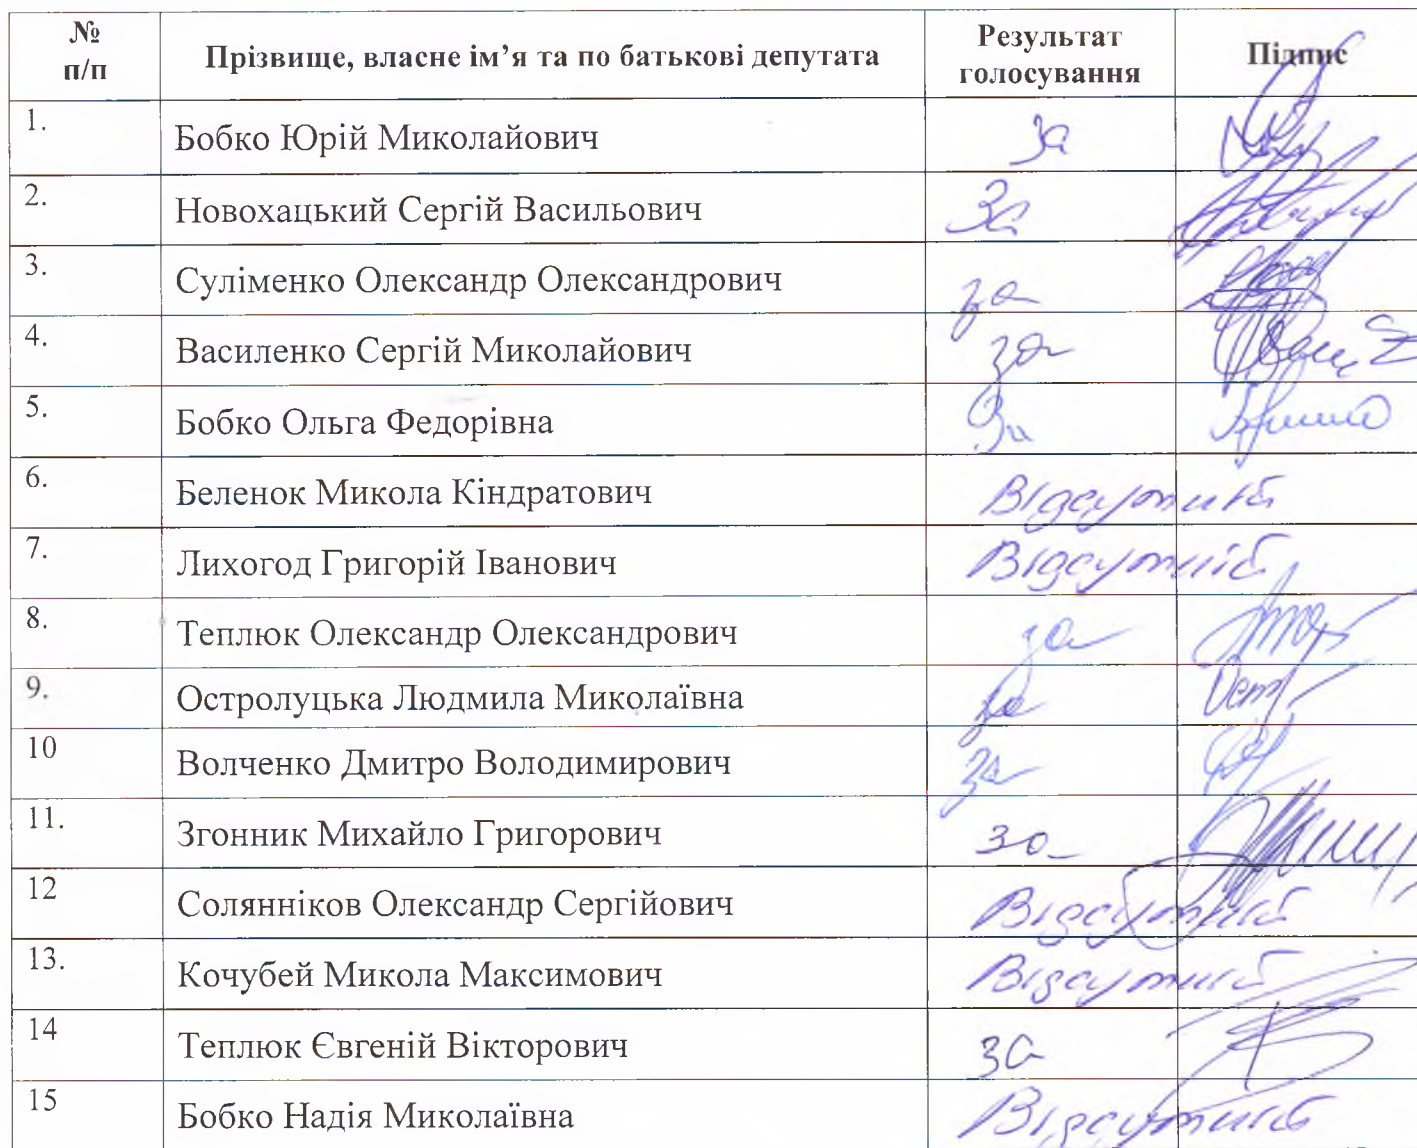 № п/п Прізвище, власне ім’я та по батькові депутата Результат голосування Підпис
1. Бобко Юрій Миколайович за
2. Новохацький Сергій Васильович За
3. Суліменко Олександр Олександрович за
4. Василенко Сергій Миколайович за
5. Бобко Ольга Федорівна За
6. Беленок Микола Кіндратович Відсутній
7. Лихогод Григорій Іванович Відсутній
8. Теплюк Олександр Олександрович за
9. Остролуцька Людмила Миколаївна за
10 Волченко Дмитро Володимирович за
11. Згонник Михайло Григорович за
12 Солянніков Олександр Сергійович Відсутній
13. Кочубей Микола Максимович Відсутній
14 Теплюк Євгеній Вікторович за
15 Бобко Надія Миколаївна Відсутній